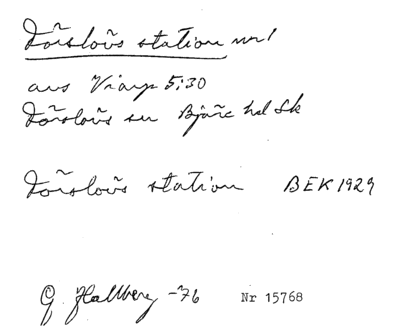 Förslövs station nr 1
avs Viarp 5:30
Förslövs sn Bjäre hd Sk
Förslövs station BEK 1929
G. Hallberg -76 Nr 15768